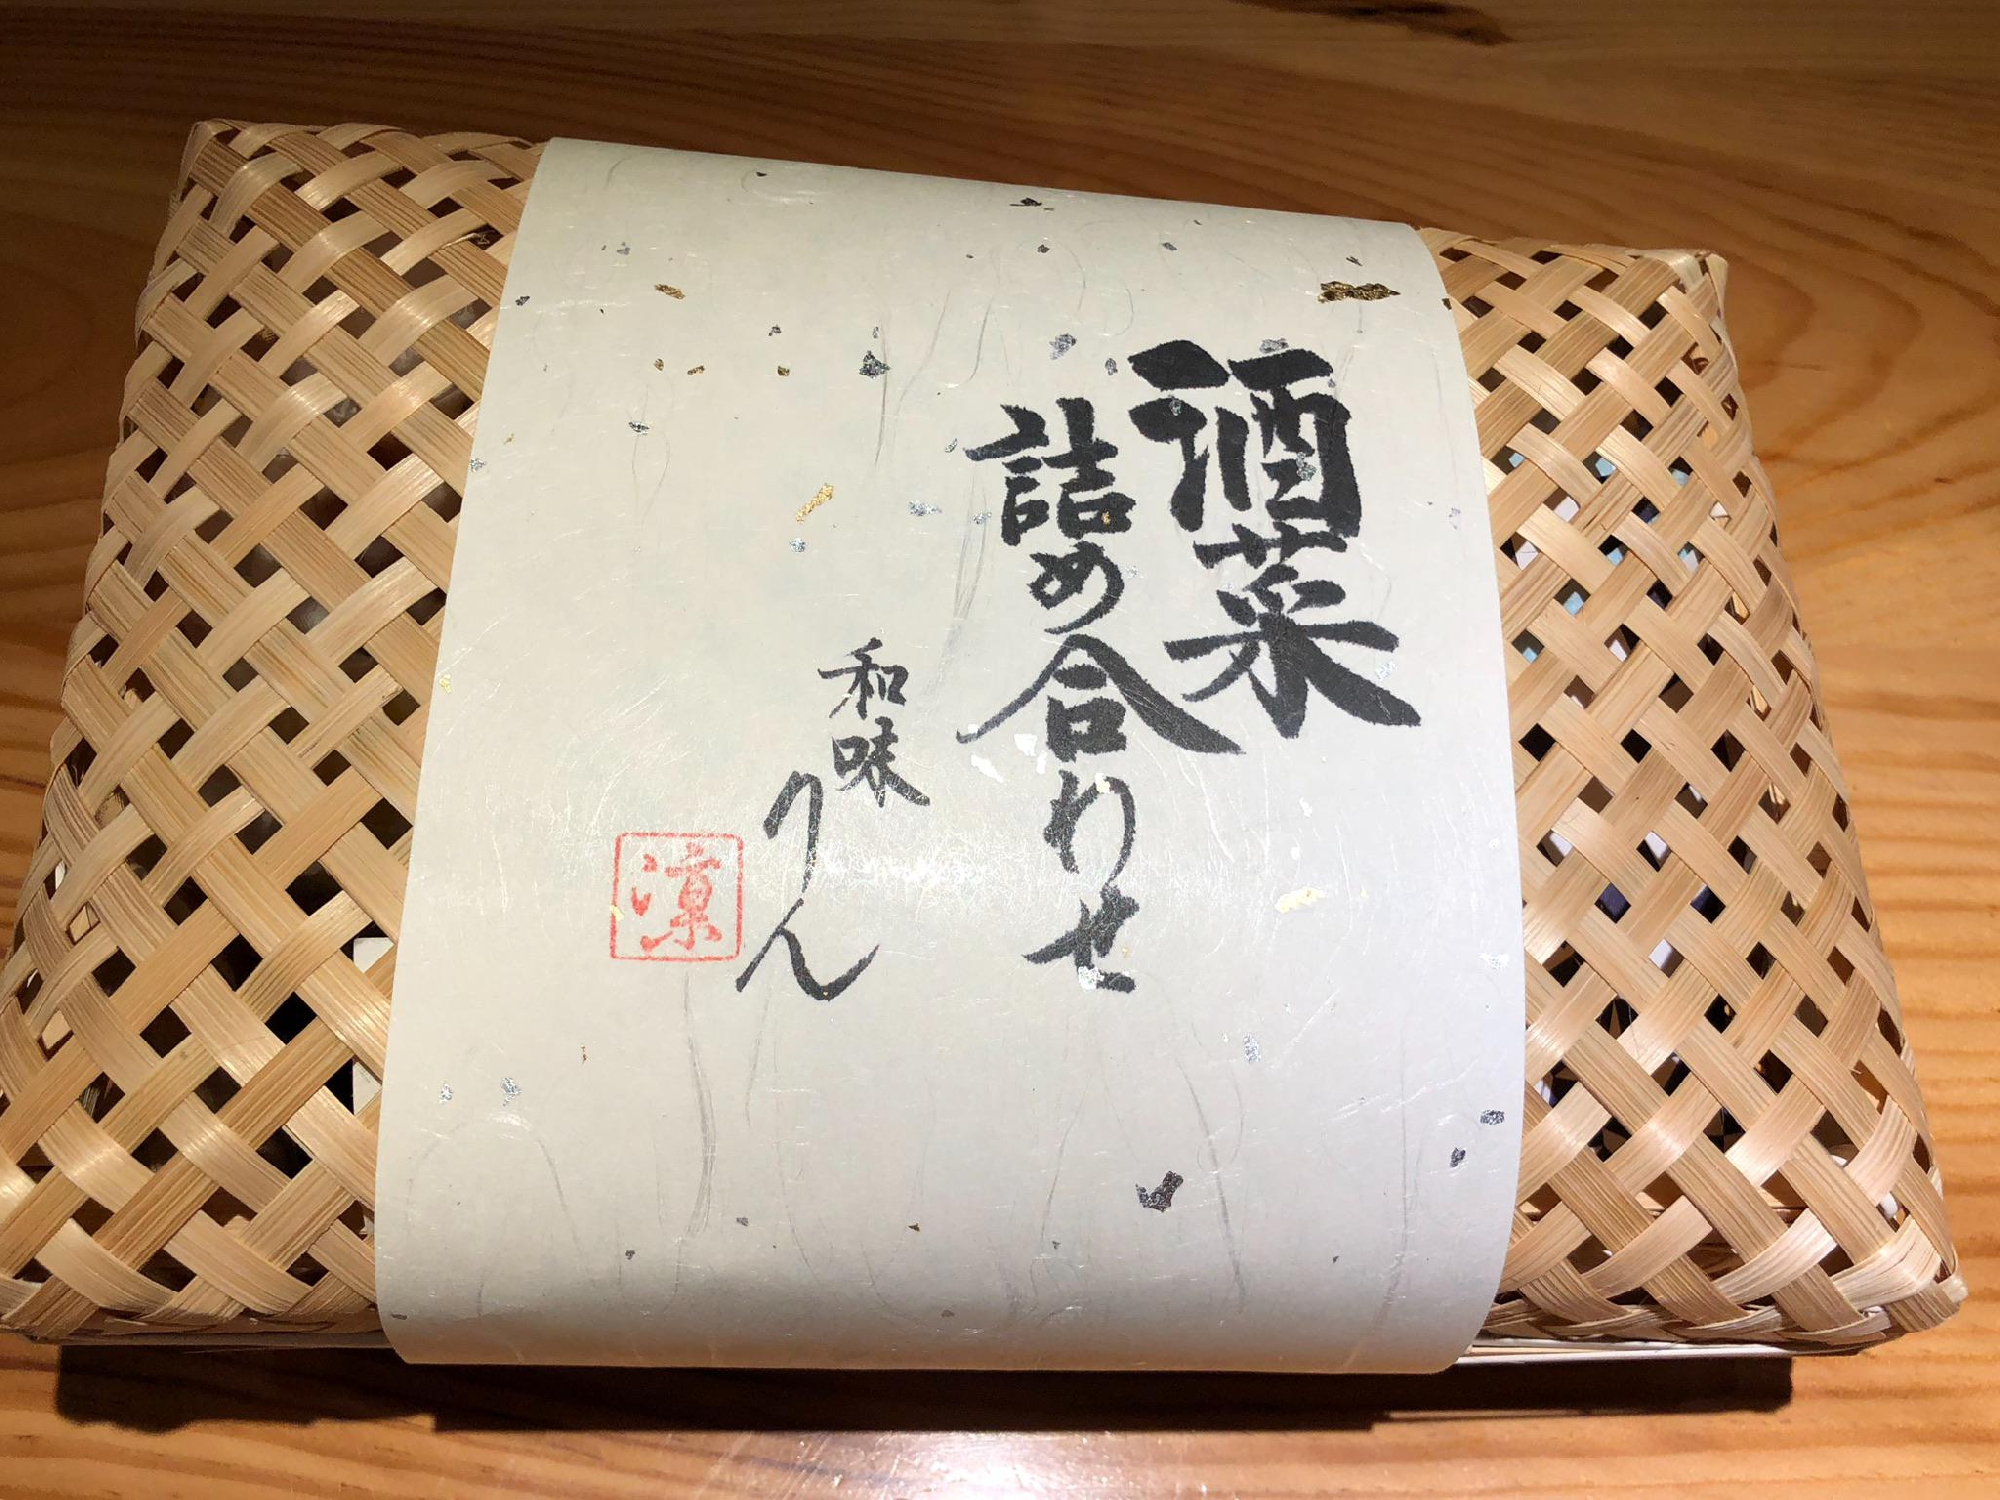 酒菜
詰め合わせ
和味
りん
凛